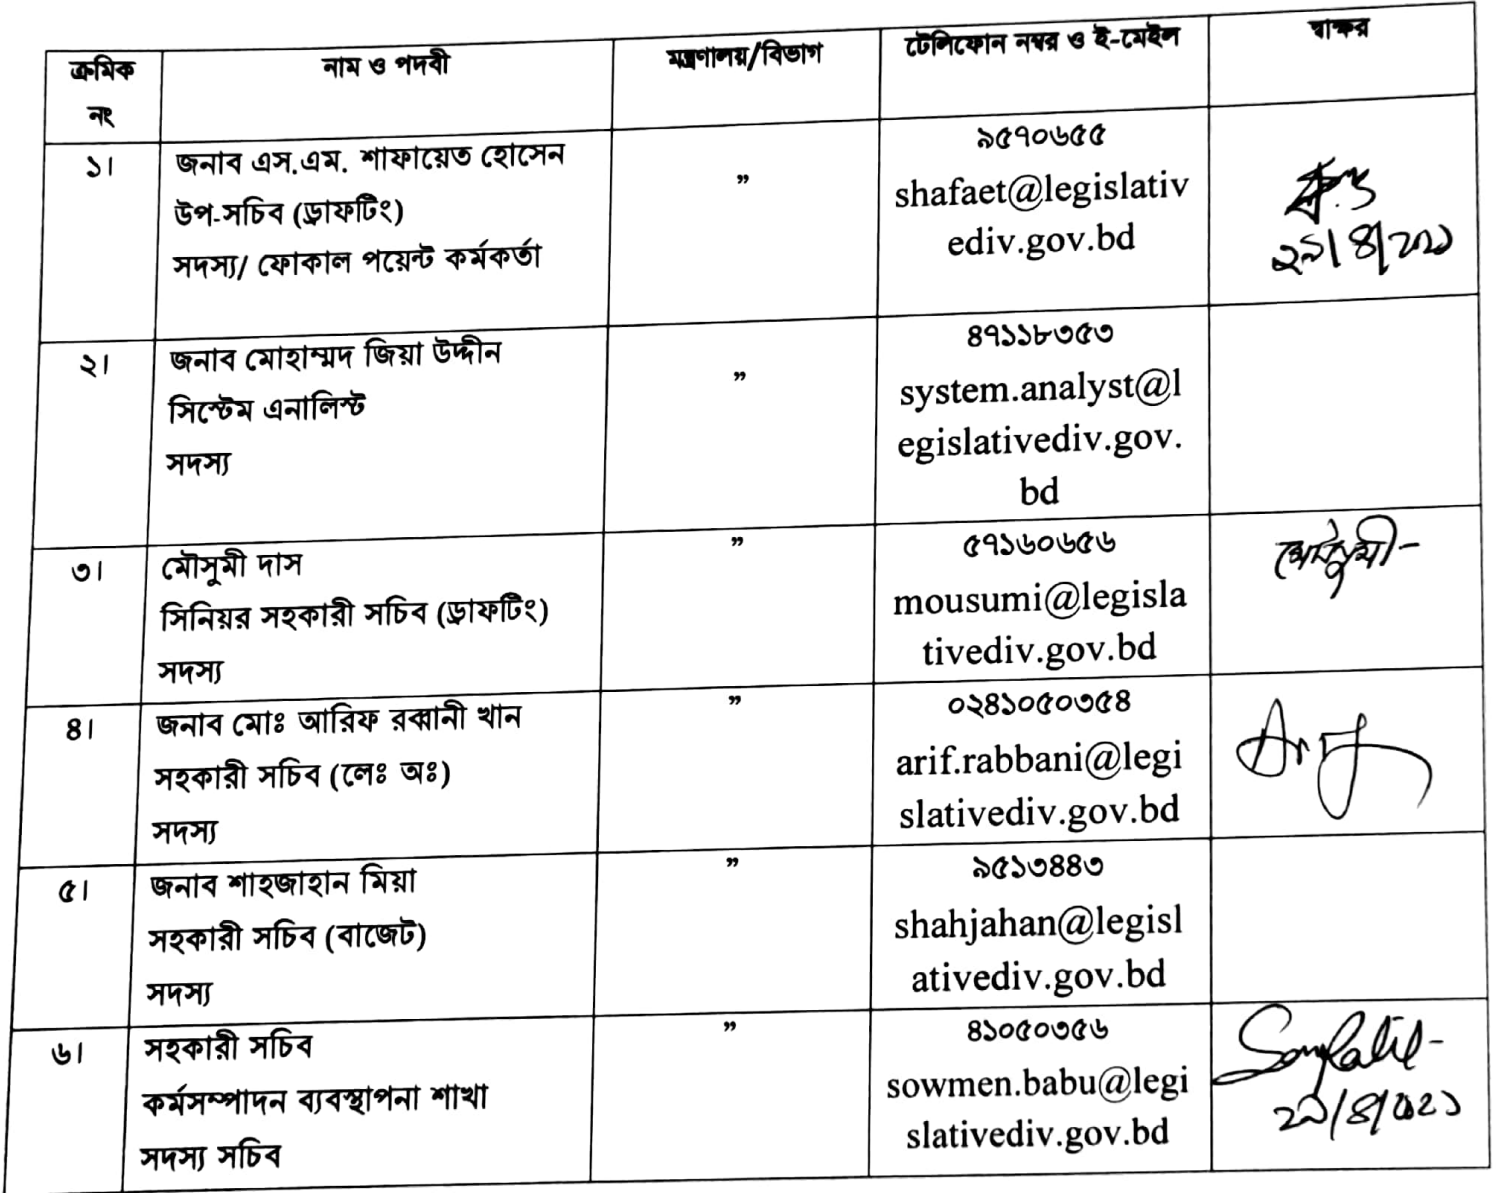 ক্রমিক নং
নাম ও পদবী
মন্ত্রণালয়/বিভাগ
টেলিফোন নম্বর ও ই-মেইল
স্বাক্ষর
১।
জনাব এস.এম. শাফায়েত হোসেন
উপ-সচিব (ড্রাফটিং)
সদস্য/ ফোকাল পয়েন্ট কর্মকর্তা
”
৯৫৭০৬৫৫
shafaet@legislativ
ediv.gov.bd
২।
জনাব মোহাম্মদ জিয়া উদ্দীন
সিস্টেম এনালিস্ট
সদস্য
”
৪৭১১৮৩৫৩
system.analyst@l
egislativediv.gov.
bd
৩।
মৌসুমী দাস
সিনিয়র সহকারী সচিব (ড্রাফটিং)
সদস্য
”
৫৭১৬০৬৫৬
mousumi@legisla
tivediv.gov.bd
মৌসুমী-
৪।
জনাব মোঃ আরিফ রব্বানী খান
সহকারী সচিব (লেঃ অঃ)
সদস্য
”
০২৪১০৫০৩৫৪
arif.rabbani@legi
slativediv.gov.bd
৫।
জনাব শাহজাহান মিয়া
সহকারী সচিব (বাজেট)
সদস্য
”
৯৫১৩৪৪৩
shahjahan@legisl
ativediv.gov.bd
৬।
সহকারী সচিব
কর্মসম্পাদন ব্যবস্থাপনা শাখা
সদস্য সচিব
”
৪১০৫০৩৫৬
sowmen.babu@legi
slativediv.gov.bd